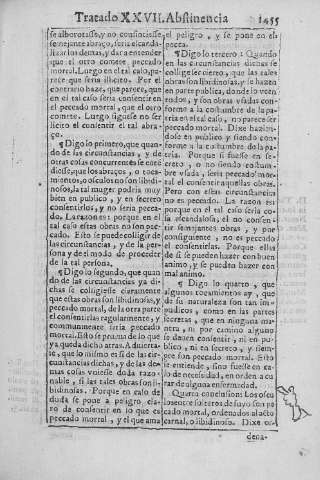 Tratado XXVII. Abstinencia
1455
se alborotasse, y no consintiesse
semejante abraço, seria escanda-
lizar los demas, y dar a entender
que el otro comete peccado
mortal. Luego en el tal caso, pa-
rece que seria licito. Por el
contrario haze, que parece, que
en el tal caso seria consentir en
el peccado mortal, que el otro
comete. Luego siguese no ser
licito el consentir el tal abra-
ço.
¶ Digo lo primero, que quan-
do de las circunstancias, y de
otras cosas concurrentes se enté
diesse, que los abraços, o toca-
mientos, o osculos no son libidi-
nosos, la tal muger podria muy
bien en publico, y en secreto
consentirlos, y no seria pecca-
do. La razon es: porque en el
tal caso estas obras no son pec-
cado. Esto se puede colligir de
las circunstancias, y de la perso-
na y de el modo de proceder
de la tal persona.
¶ Digo lo segundo, que quan
do de las circunstancias ya di-
chas se colligiesse claramente
que estas obras son libidinosas, y
peccado mortal, de la otra parte
el consentirlas regularmente, y
communmente seria peccado
mortal. Esto se prueua de lo que
ya queda dicho atras. Aduierta-
se, que lo mismo es si de las cir-
cunstancias dichas, y de las de-
mas cosas vuiesse duda razo-
nable, si las tales obras son li-
bidinosas. Porque en caso de
duda se pone a peligro cla-
ro de consentir en lo que es
peccado mortal, y el que ama
el peligro, y se pone en el
pecca.
¶ Digo lo tercero: Quando
en las circunstancias dichas se
collige ser cierto, que las tales
obras son libidinosas, y se hazen
en parte publica, donde lo ven
todos, y son obras vsadas con-
forme a la costumbre de la pa-
tria en el tal caso, no parece ser
peccado mortal. Dixe hazien-
dose en publico y siendo con-
forme a la costumbre de la pa-
tria. Porque si fuesse en se-
creto, o no siendo costum-
bre vsada, seria peccado mor-
tal el consentir aquellas obras.
Pero con estas circunstancias
no es peccado. La razon es:
porque en el tal caso seria co-
sa escandalosa, el no consen-
tir semejantes obras, y por
consiguiente, no es peccado
el consentirlas. Porque ellas
de si se pueden hazer con buen
animo, y se pueden hazer con
mal animo.
¶ Digo lo quarto, que
algunos tocamientos ay, que
de su naturaleza son tan im-
pudicos, como en las partes
secretas, que en ninguna ma-
nera, ni por camino alguno
se deuen consentir, ni en pu-
blico, ni en secreto, y siem-
pre son peccado mortal. Esto
se entiende, sino fuesse en ca-
so de necessidad, en orden a cu
rar de alguna enfermedad.
Quarta conclusion: Los oscu
los entre solteros de suyo son pe
cado mortal, ordenados al acto
carnal, o libidinoso. Dixe os-
dena-